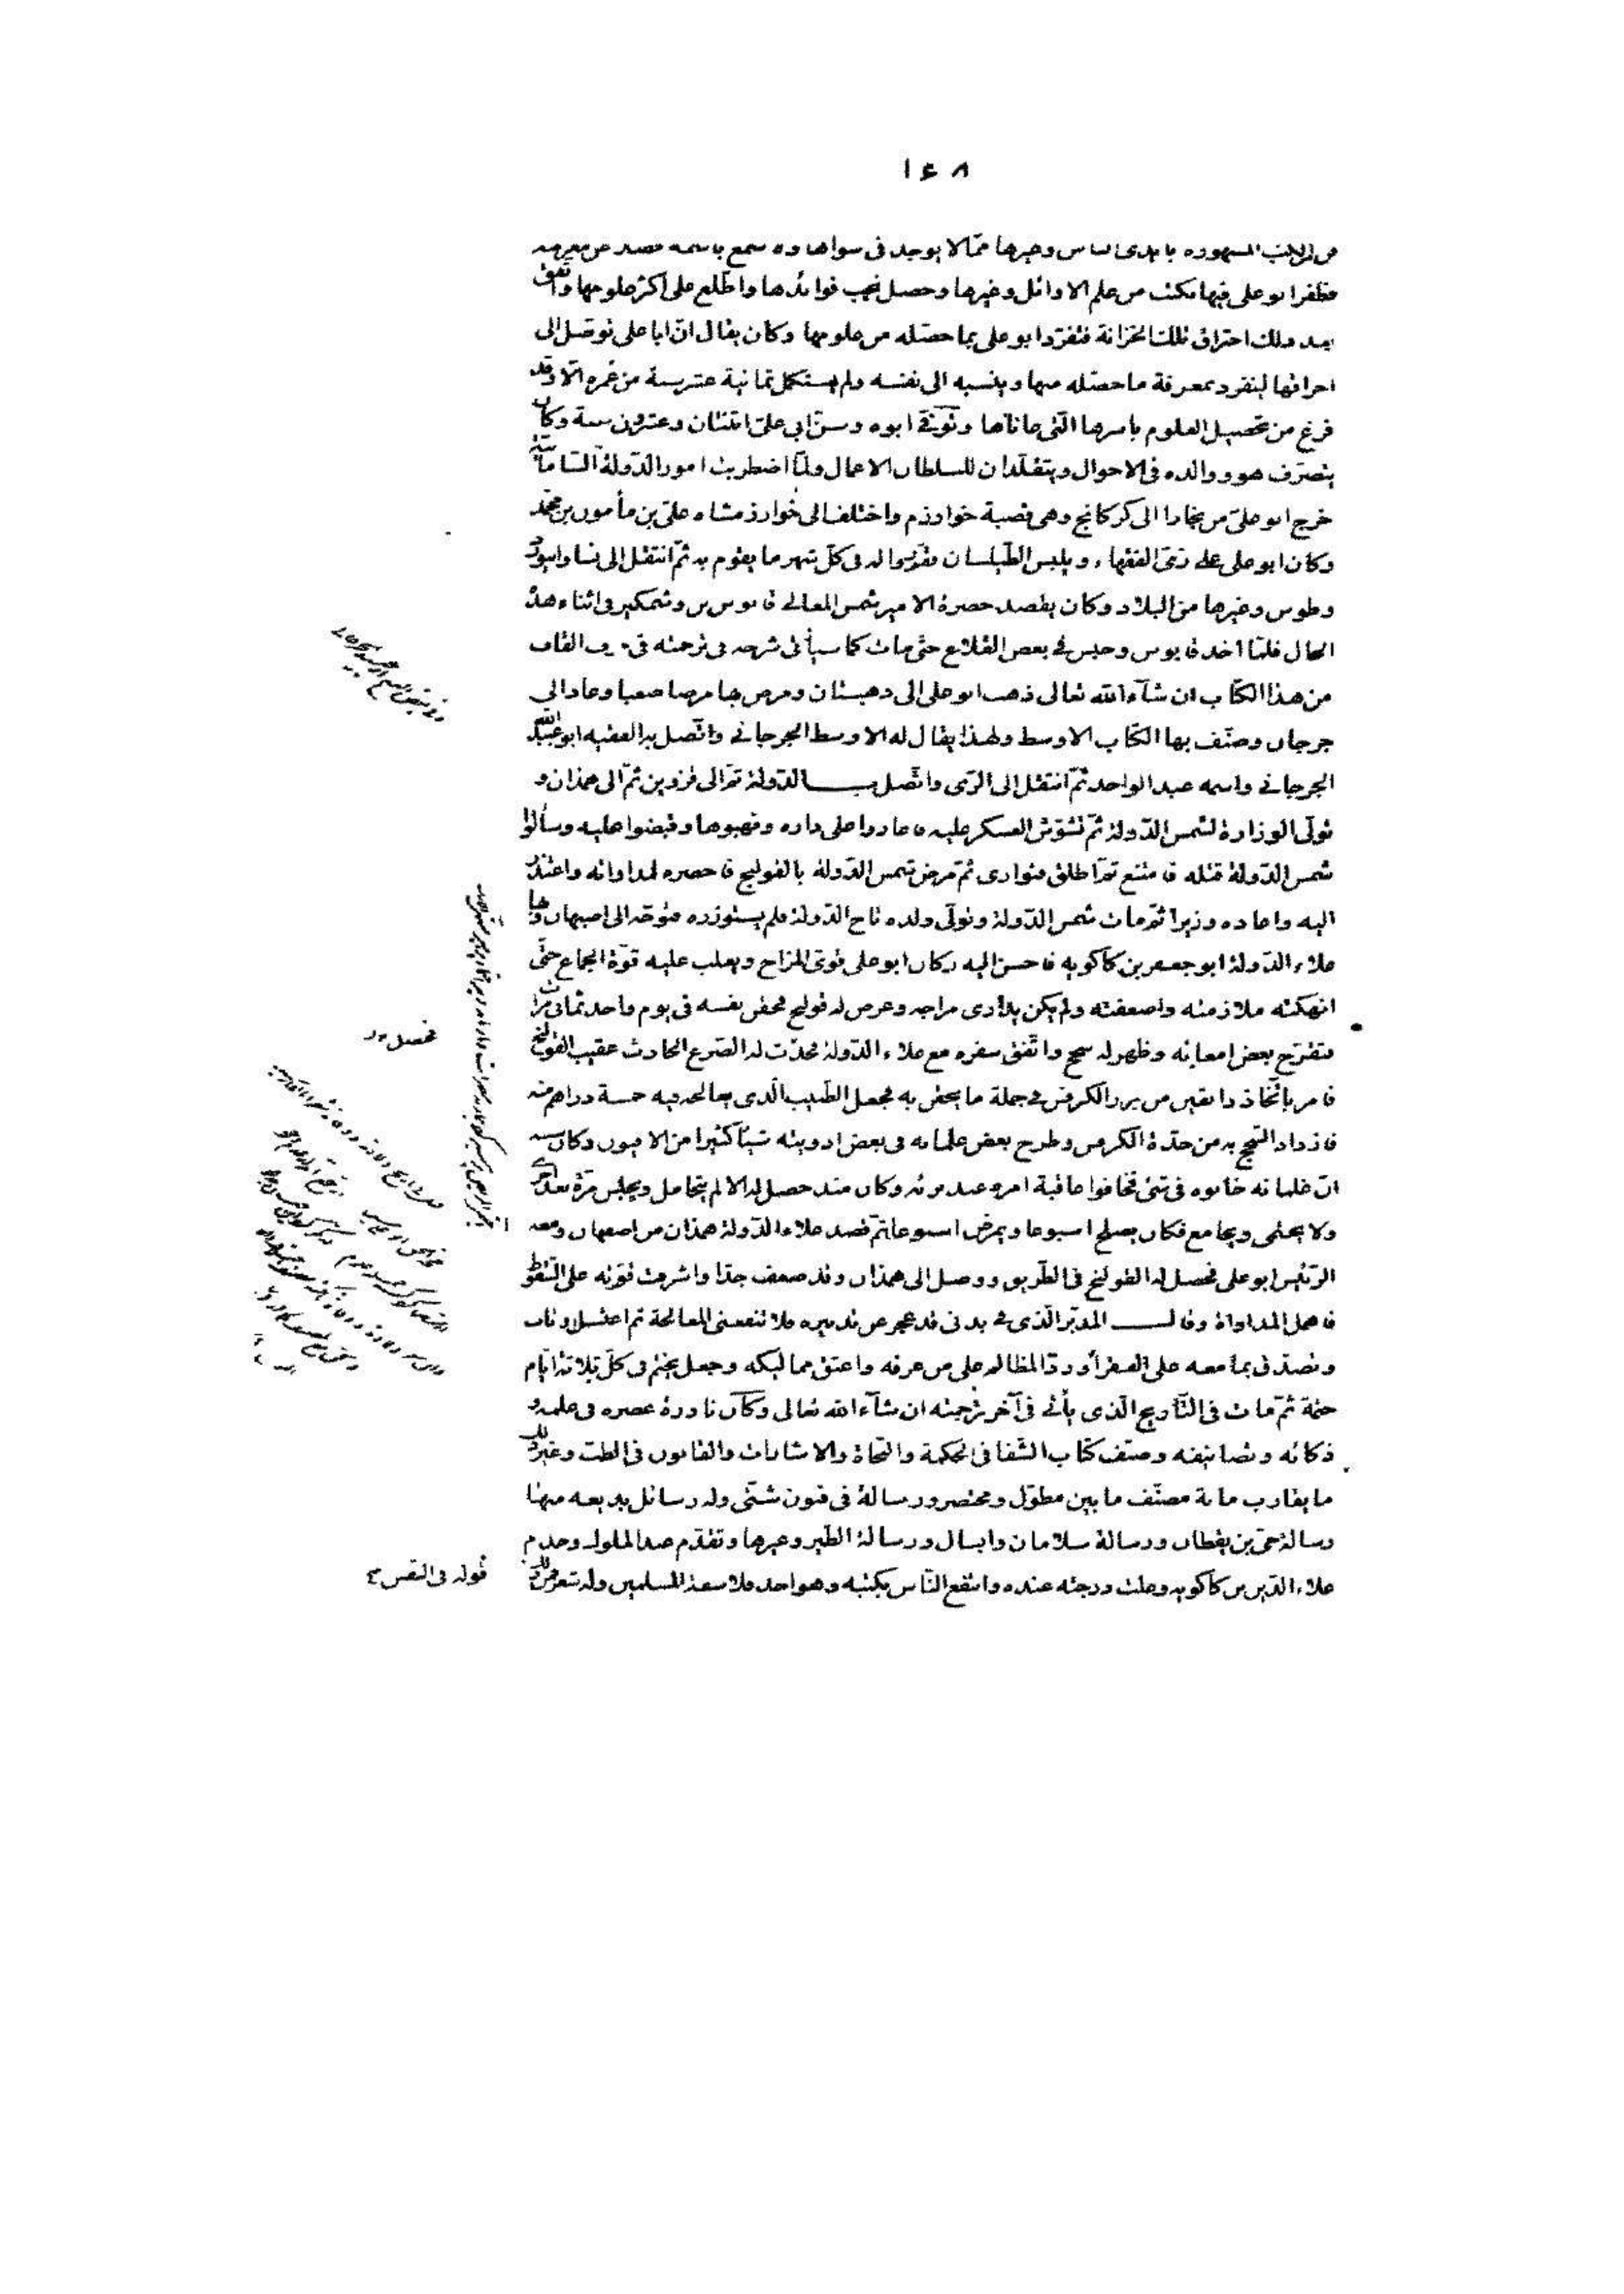 ١٤٨
من الكتب المشهورة بايدى الناس وغيرها ممّا لا يوجد فى سواها ولا سمع باسمه فضلا عن معرفته
فظفر ابو على فيها بكتب من علم الاوائل وغيرها وحصل نخب فوائدها واطّلع على اكثر علومها واتّفق
بعد ذلك احتراق تلك الخزانة فتفرّد ابو على بما حصّله من علومها وكان يقال انّ ابا على توصّل الى
احراقها لينفرد بمعرفة ما حصّله منها وينسبه الى نفسه ولم يستكمل ثمانية عشر سنة من عمره الّا وقد
فرغ من تحصيل العلوم باسرها الّتى عاناها وتوفّى ابوه وسنّ ابى علىّ اثنتان وعشرون سنة وكان
يتصرّف هو ووالده فى الاحوال ويتقلّدان للسلطان الاعمال ولمّا اضطربت امور الدّولة السّامانيّة
خرج ابو علىّ من بخارا الى كركانج وهى قصبة خوارزم واختلف الى خوارزمشاه علىّ بن مأمون بن محمّد
وكان ابو على على زىّ الفقهاء ويلبس الطّيلسان فقرّروا له فى كلّ شهر ما يقوم به ثمّ انتقل الى نسا وابيورد
وطوس وغيرها من البلاد وكان يقصد حضرة الامير شمس المعالى قابوس بن وشمكير فى اثناء هذه
الحال فلمّا اخذ قابوس وحبس فى بعض القلاع حتّى مات كما سيأتى شرحه فى ترجمته فى حرف القاف
من هذا الكتاب ان شآء الله تعالى ذهب ابو على الى دهستان ومرض بها مرضا صعبا وعاد الى
جرجان وصنّف بها الكتاب الاوسط ولهذا يقال له الاوسط الجرجانى واتّصل به الفقيه ابو عبيد الله
الجرجانى واسمه عبد الواحد ثمّ انتقل الى الرّى واتّصل بـالدّولة ثمّ الى قزوين ثمّ الى همذان و
تولّى الوزارة لشمس الدّولة ثمّ تشوّش العسكر عليه فاغاروا على داره ونهبوها وقبضوا عليه وسألوا
شمس الدّولة قتله فامتنع ثمّ اطلق فتوارى ثمّ مرض شمس الدّولة بالقولنج فاحضره لمداواته واعتذر
اليه واعاده وزيرا ثمّ مات شمس الدّولة وتولّى ولده تاج الدّولة فلم يستوزره فتوجّه الى اصبهان وبها
علاء الدّولة ابو جعفر بن كاكويه فاحسن اليه وكان ابو على قوىّ المزاج ويغلب عليه قوّة الجماع حتّى
انهكته ملازمته واضعفته ولم يكن يدارى مزاجه وعرض له قولنج فحقن نفسه فى يوم واحد ثمانى مرّات
فتقرّح بعض امعائه وظهر له سحج واتّفق سفره مع علاء الدّولة فحدث له الصّرع الحادث عقيب القولنج
فامر باتّخاذ دانقين من بزر الكرفس فى جملة ما يحقن به فجعل الطّبيب الّذى يعالجه فيه خمسة دراهم منه
فازداد السّحج به من حدّة الكرفس وطرح بعض غلمانه فى بعض ادويته شيئا كثيرا من الافيون وكان سببه
انّ غلمانه خانوه فى شئ فخافوا عاقبة امره عند برئه وكان منذ حصل له الالم يتحامل ويجلس مرّة بعد اخرى
ولا يحتمى ويجامع فكان يصلح اسبوعا ويمرض اسبوعا ثمّ قصد علاء الدّولة همذان من اصفهان ومعه
الرّئيس ابو على فحصل له القولنج فى الطّريق ووصل الى همذان وقد ضعف جدّا واشرفت قوّته على السّقوط
فاهمل المداواة وقال المدبّر الّذى فى بدنى قد عجز عن تدبيره فلا تنفعنى المعالجة ثم اغتسل وتاب
وتصدّق بما معه على الفقرآء وردّ المظالم على من عرفه واعتق مماليكه وجعل يختم فى كلّ ثلاثة ايّام
ختمة ثمّ مات فى التّاريخ الّذى يأتى فى آخر ترجمته ان شآء الله تعالى وكان نادرة عصره فى علمه و
ذكائه وتصانيفه وصنّف كتاب الشّفا فى الحكمة والنّجاة والاشارات والقانون فى الطب وغير ذلك
ما يقارب ماية مصنّف ما بين مطوّل ومختصر ورسالة فى فنون شتّى وله رسائل بديعه منها
رسالة حىّ بن يقظان ورسالة سلامان وابسال ورسالة الطّير وغيرها وتقدّم عند الملوك وخدم
علاء الدّين بن كاكويه وعلت درجته عنده وانتفع النّاس بكتبه وهو احد فلاسفة المسلمين وله شعر فمن ذلك
فحصل
قوله فى النفس